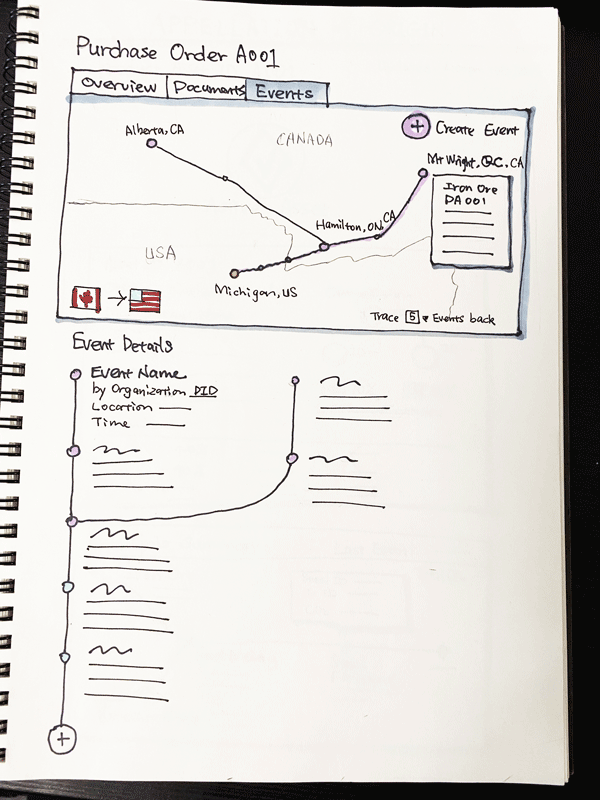 Purchase Order A001
Overview
Documents
Events
Alberta, CA
CANADA
+ Create Event
Mt Wright, QC, CA
Iron Ore
DA001
Hamilton, ON, CA
USA
Michigan, US
Trace 5 Events back
Event Details
Event Name
by Organization DID
Location
Time
+